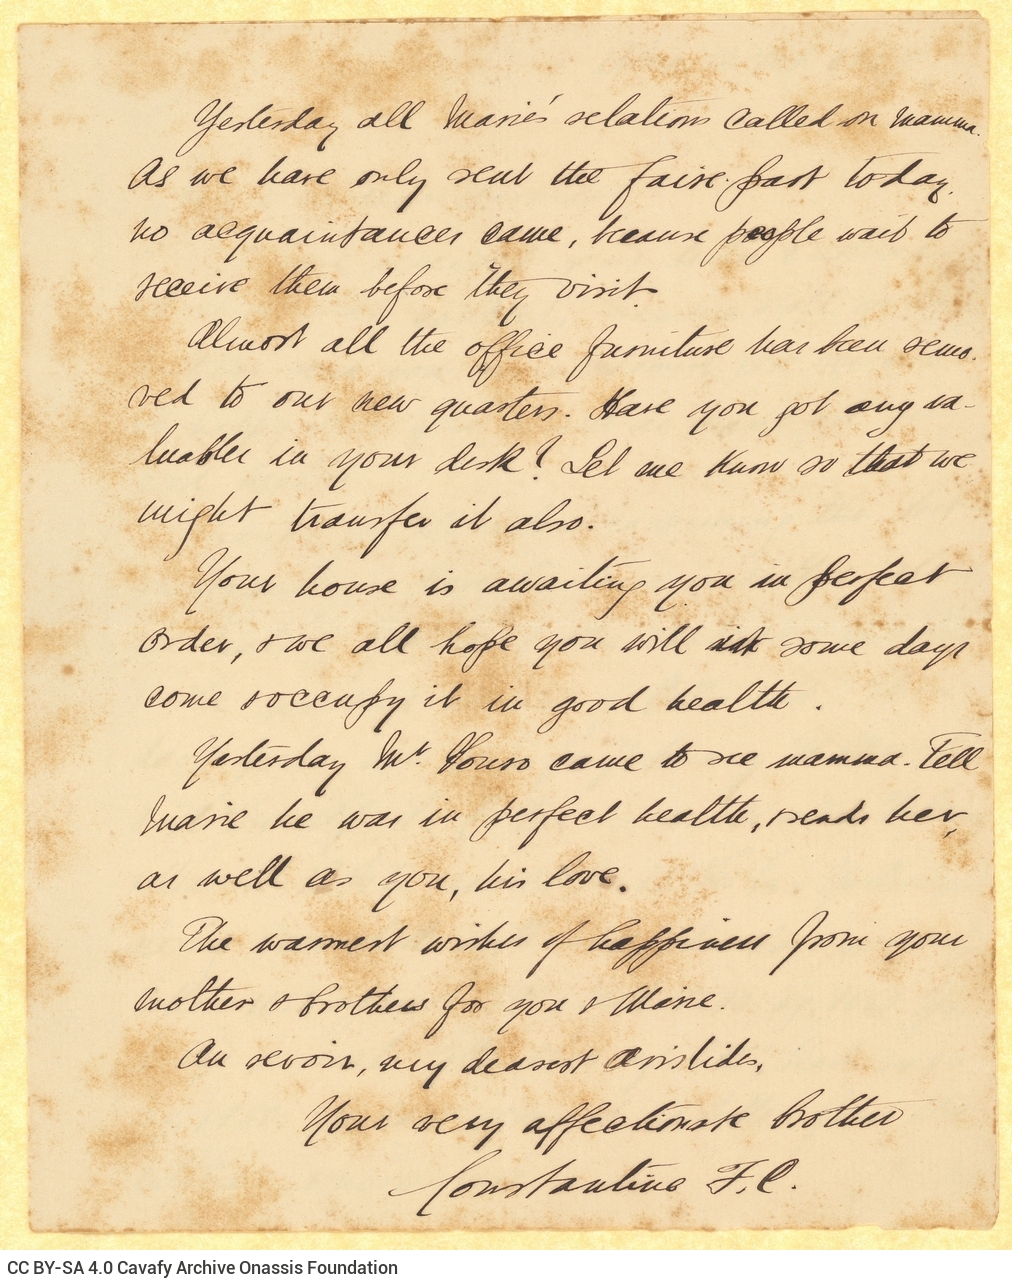 Yesterday all Marie's relations called on mamma.
As we have only sent the faire-part today,
no acquaintances came, because people wait to
receive them before they visit.
Almost all the office furniture has been remo-
ved to our new quarters. Have you got any va-
luables in your desk? Let me know so that we
might transfer it also.
Your house is awaiting you in perfect
order, & we all hope you will in some days
come & occupy it in good health.
Yesterday Mr. came to see mamma. Tell
Marie he was in perfect health, & sends her,
as well as you, his love.
The warmest wishes of happiness from your
mother & brothers for you & Marie.
Au revoir, my dearest Aristides,
Your very affectionate brother
Constantine F. C.
CC BY-SA 4.0 Cavafy Archive Onassis Foundation